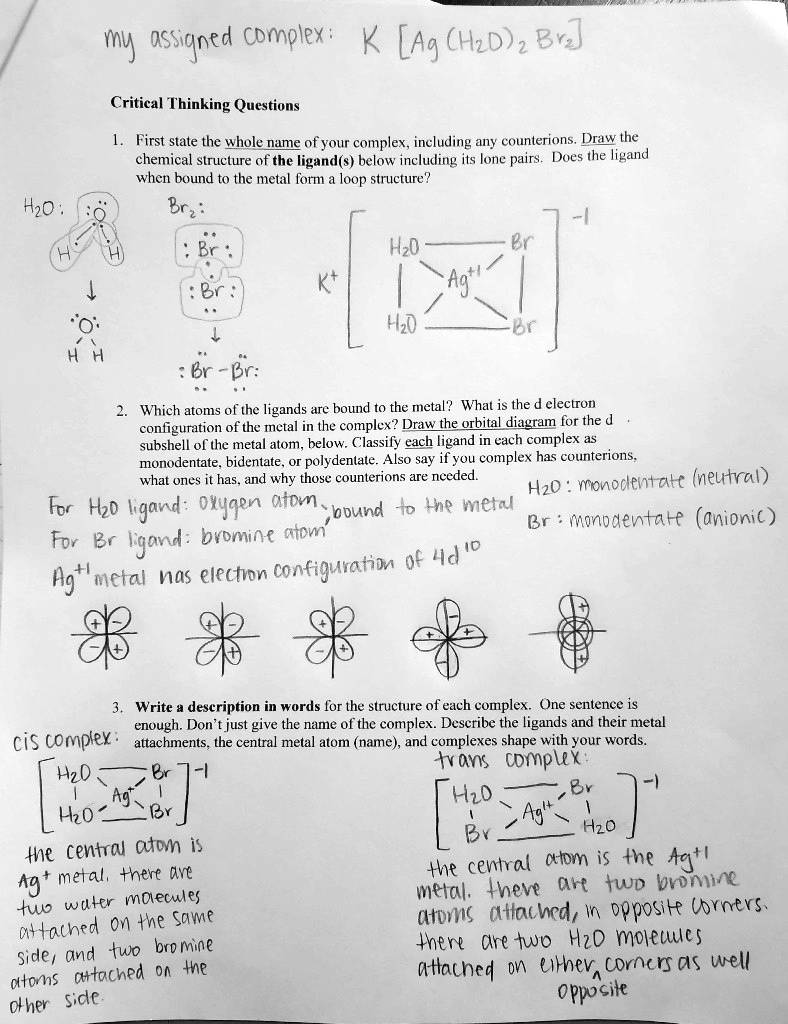 my assigned complex: K [Ag (H2O)2 Br2]
Critical Thinking Questions
1. First state the whole name of your complex, including any counterions. Draw the
chemical structure of the ligand(s) below including its lone pairs. Does the ligand
when bound to the metal form a loop structure?
H2O: Br2:
:O: H H
:Br:
:Br:
:O:
H H
:Br-Br:
K+ [H2O Br -1
Ag+1
H2O Br]
2. Which atoms of the ligands are bound to the metal? What is the d electron
configuration of the metal in the complex? Draw the orbital diagram for the d
subshell of the metal atom, below. Classify each ligand in each complex as
monodentate, bidentate, or polydentate. Also say if you complex has counterions,
what ones it has, and why those counterions are needed.
H2O: monodentate (neutral)
For H2O ligand: oxygen atom, bound to the metal
Br: monodentate (anionic)
For Br ligand: bromine atom
Ag+1 metal has electron configuration of 4d10
+ - - + + - - + + - - + - + + - + +
3. Write a description in words for the structure of each complex. One sentence is
enough. Don't just give the name of the complex. Describe the ligands and their metal
attachments, the central metal atom (name), and complexes shape with your words.
cis complex:
[H2O Br]-1
Ag+
H2O Br
the central atom is
Ag+ metal. there are
two water molecules
attached on the same
side, and two bromine
atoms attached on the
other side.
trans complex:
[H2O Br]-1
Ag1+
Br H2O
the central atom is the Ag+1
metal. there are two bromine
atoms attached, in opposite corners.
there are two H2O molecules
attached on either opposite corners as well